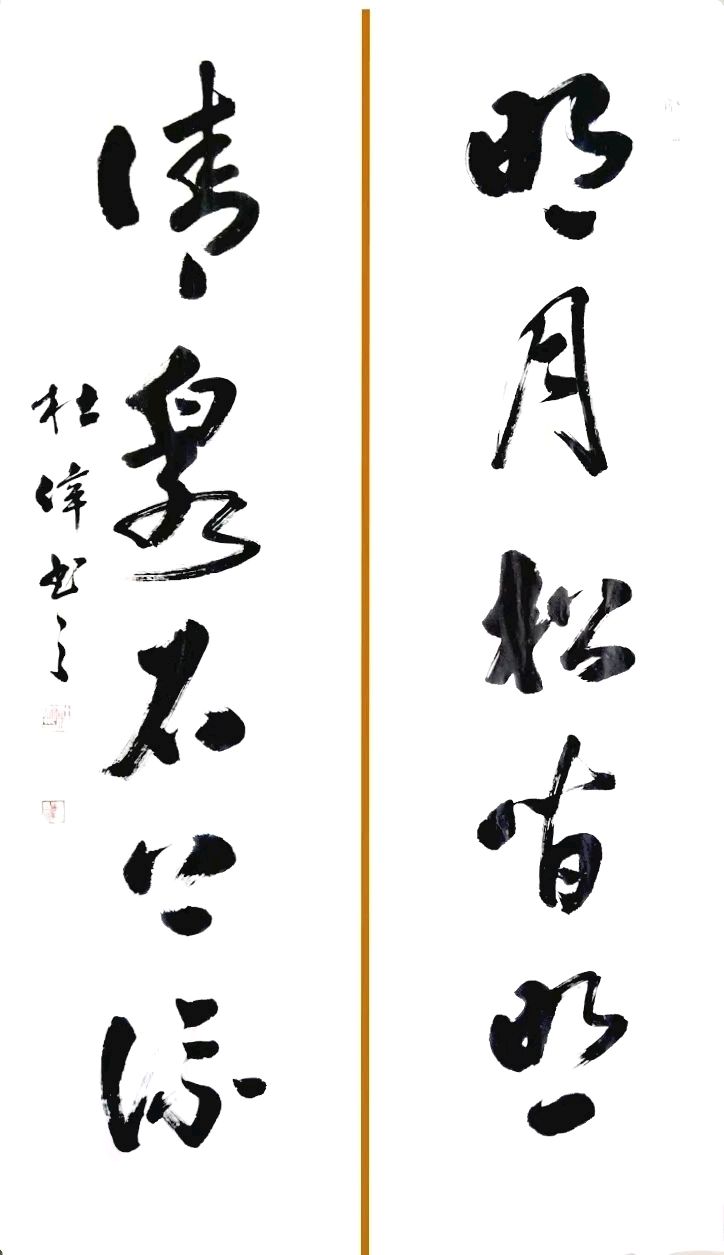 明月松间照
清泉石上流
杜偉书